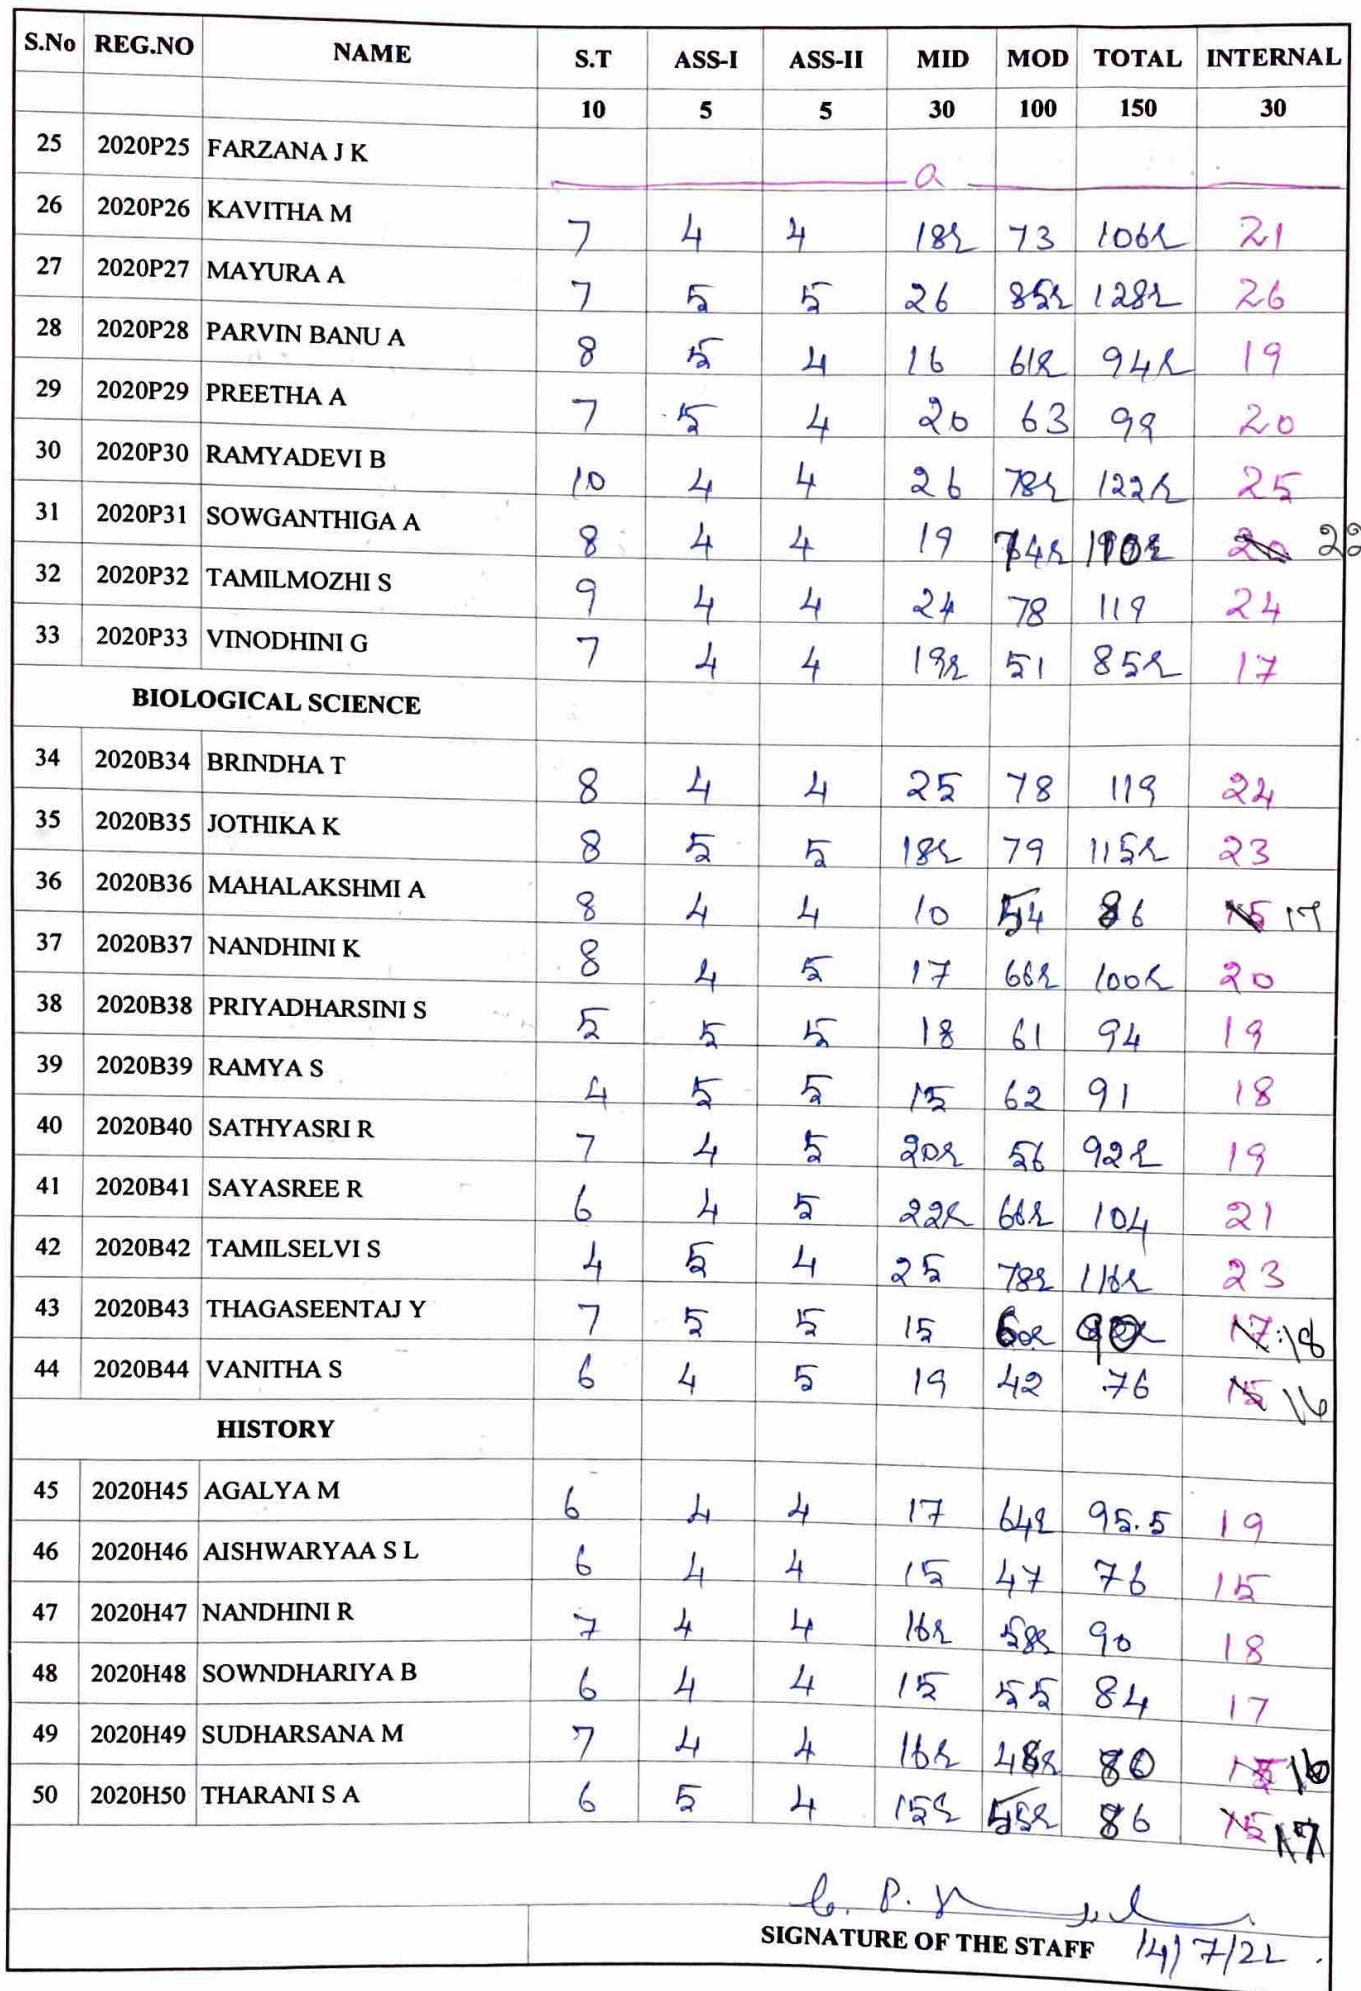 S.No REG.NO NAME S.T ASS-I ASS-II MID MOD TOTAL INTERNAL
10 5 5 30 100 150 30
25 2020P25 FARZANA J K a
26 2020P26 KAVITHA M 7 4 4 18½ 73 106½ 21
27 2020P27 MAYURA A 7 5 5 26 85½ 128½ 26
28 2020P28 PARVIN BANU A 8 5 4 16 61½ 94½ 19
29 2020P29 PREETHA A 7 5 4 20 63 99 20
30 2020P30 RAMYADEVI B 10 4 4 26 78½ 122½ 25
31 2020P31 SOWGANTHIGA A 8 4 4 19 74½ 20 22
32 2020P32 TAMILMOZHI S 9 4 4 24 78 119 24
33 2020P33 VINODHINI G 7 4 4 19½ 51 85½ 17
BIOLOGICAL SCIENCE
34 2020B34 BRINDHA T 8 4 4 25 78 119 24
35 2020B35 JOTHIKA K 8 5 5 18½ 79 115½ 23
36 2020B36 MAHALAKSHMI A 8 4 4 10 54 86 15 17
37 2020B37 NANDHINI K 8 4 5 17 66½ 100½ 20
38 2020B38 PRIYADHARSINI S 5 5 5 18 61 94 19
39 2020B39 RAMYA S 4 5 5 15 62 91 18
40 2020B40 SATHYASRI R 7 4 5 20½ 56 92½ 19
41 2020B41 SAYASREE R 6 4 5 22½ 66½ 104 21
42 2020B42 TAMILSELVI S 4 5 4 25 78½ 116½ 23
43 2020B43 THAGASEENTAJ Y 7 5 5 15 60½ 17 18
44 2020B44 VANITHA S 6 4 5 19 42 76 15 16
HISTORY
45 2020H45 AGALYA M 6 4 4 17 64½ 95.5 19
46 2020H46 AISHWARYAA S L 6 4 4 15 47 76 15
47 2020H47 NANDHINI R 7 4 4 16½ 58½ 90 18
48 2020H48 SOWNDHARIYA B 6 4 4 15 55 84 17
49 2020H49 SUDHARSANA M 7 4 4 16½ 48½ 80 16
50 2020H50 THARANI S A 6 5 4 15½ 55½ 86 15 17
SIGNATURE OF THE STAFF 14/7/22